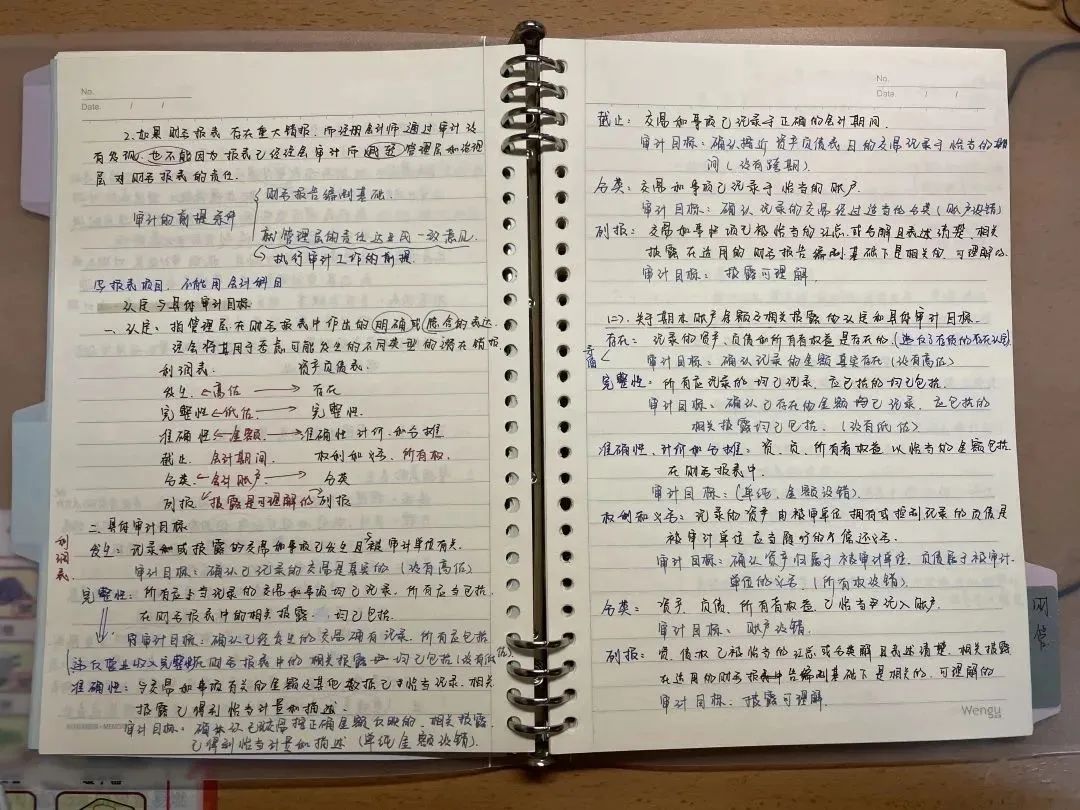 No.
Date. / /
2.如果财务报表存在重大错报,而注册会计师通过审计没
有发现,也不能因为报表已经注会审计而减轻管理层和治理
层对财务报表的责任.
财务报告编制基础.
审计的前提条件
就管理层的责任达成一致意见.
执行审计工作的前提
写报表项目,不能用会计科目
认定与具体审计目标
一、认定:指管理层在财务报表中作出的明确或隐含的表达.
注会将其用于考虑可能发生的不同类型的潜在错报.
利润表. 资产负债表.
发生.←高估 → 存在
完整性←低估. → 完整性.
准确性←金额. → 准确性 计价.和分摊
截止. 会计期间. 权利和义务. 所有权.
分类.←会计账户. → 分类
列报.←披露是可理解的→列报
二.具体审计目标
利润表.
发生:记录和或披露的交易和事项已发生且与被审计单位有关.
审计目标:确认已记录的交易是真实的(没有高估)
完整性:所有应当记录的交易和事项均已记录,所有应当包括
在财务报表中的相关披露 均已包括.
审计目标:确认已经发生的交易确有记录,所有应包括
(违反营业收入完整性 财务报表中的相关披露 均已包括(没有低估)
准确性:与交易和事项有关的金额及其他数据已恰当记录,相关
披露已得到恰当计量和描述.
审计目标:确认已 按正确金额反映的,相关披露
已得到恰当计量和描述(单纯金额没错).
No.
Date. / /
截止:交易和事项已记录于正确的会计期间.
审计目标:确认接近资产负债表日的交易记录于恰当的期
间(没有跨期).
分类:交易和事项已记录于恰当的账户.
审计目标:确认记录的交易经过适当分类(账户没错)
列报:交易和事项已被恰当的汇总或分解且表述清楚,相关
披露在适用的财务报告编制基础下是相关的,可理解的.
审计目标:披露可理解.
(二).关于期末账户余额及相关披露的认定和具体审计目标.
存在:记录的资产、负债和所有者权益是存在的.(违反了存货的存在认定)
高估
审计目标:确认记录的金额真实存在(没有高估)
完整性:所有应记录的均已记录,应包括的均已包括.
审计目标:确认已存在的金额均已记录,应包括的
相关披露均已包括.(没有低估)
准确性、计价和分摊:资、负、所有者权益以恰当的金额包括
在财务报表中.
审计目标:(单纯,金额没错).
权利和义务:记录的资产由被审计单位拥有或控制记录的负债是
被审计单位应当履行的偿还义务.
审计目标:确认资产归属于被审计单位,负债属于被审计
单位的义务.(所有权没错).
分类:资产、负债、所有者权益已恰当记入账户.
审计目标、账户没错.
列报:资、债、权已被恰当的汇总或分类解且表述清楚,相关披露
在适用的财务报告编制基础下是相关的,可理解的
审计目标:披露可理解.
Wengu